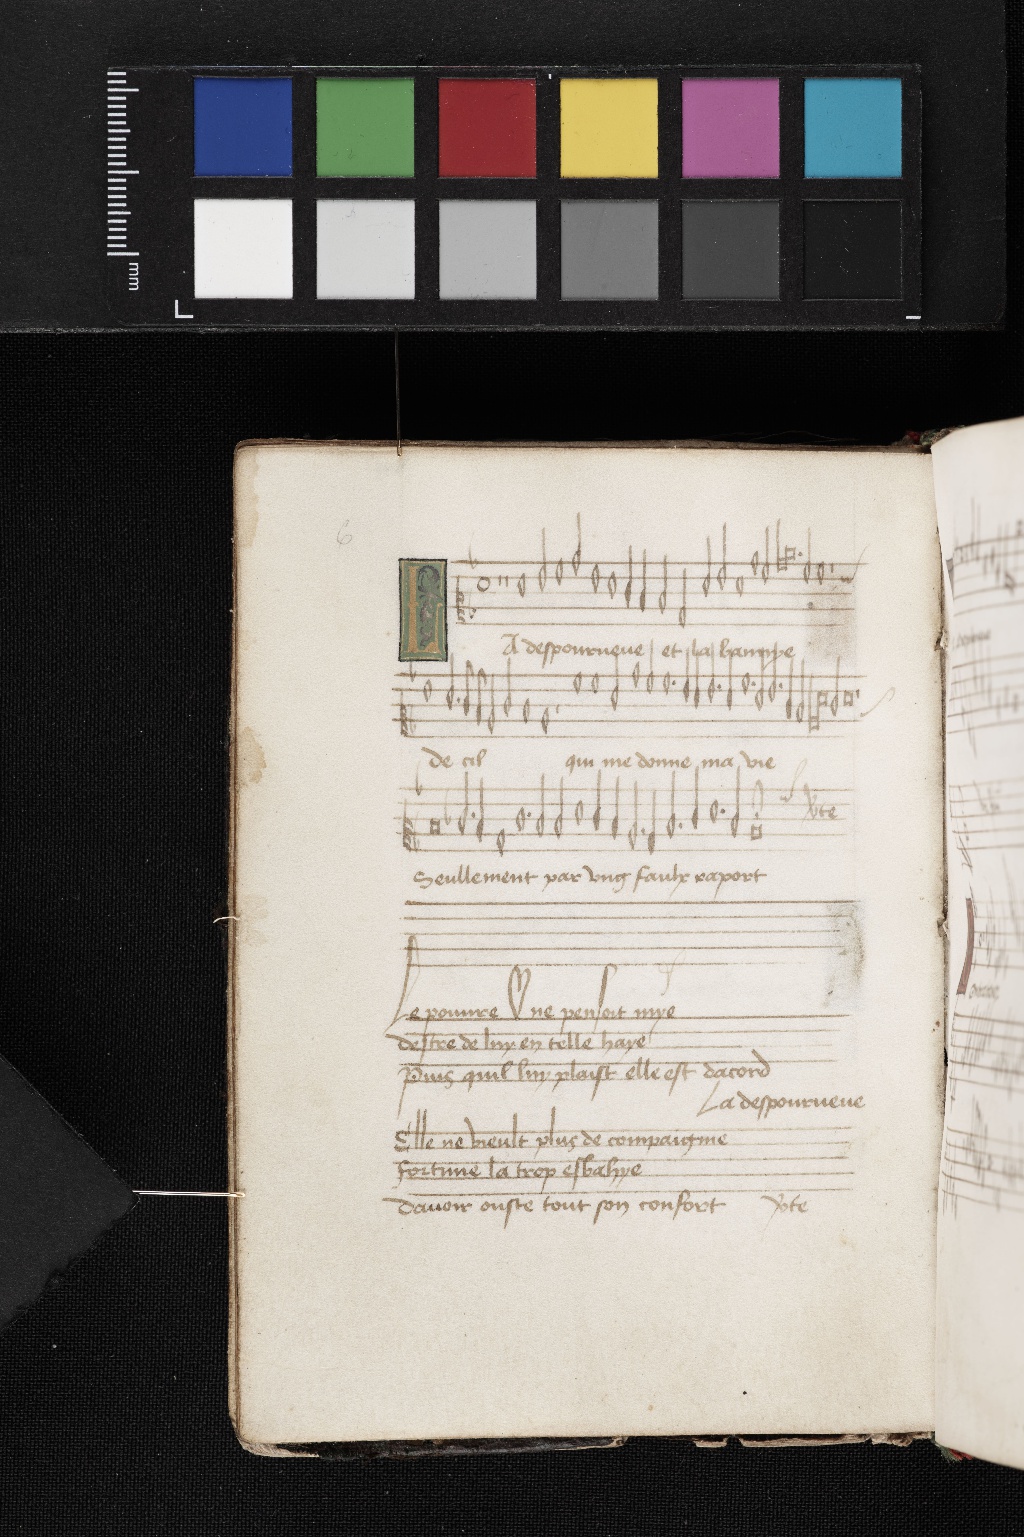 mm
6
La despourueue et la bannye
de cil qui me donne ma vie
Seullement par vng faulx raport
Le pouure ne pensoit mye
destre de luy en telle haye
Puis quil luy plaist elle est dacord
La despourueue
Elle ne vieult plus de compaignie
fortune la trop esbahye
dauoir ouste tout son confort